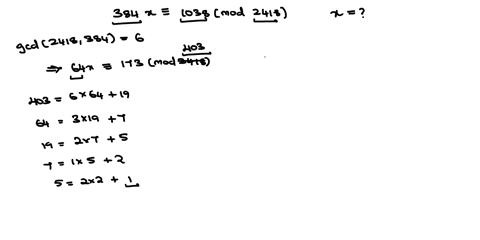 384 x ≡ 1038 (mod 2418) x = ?
gcd(2418, 384) = 6
403
⇒ 64x ≡ 173 (mod 2418)
403 = 6×64 + 19
64 = 3×19 + 7
19 = 2×7 + 5
7 = 1×5 + 2
5 = 2×2 + 1